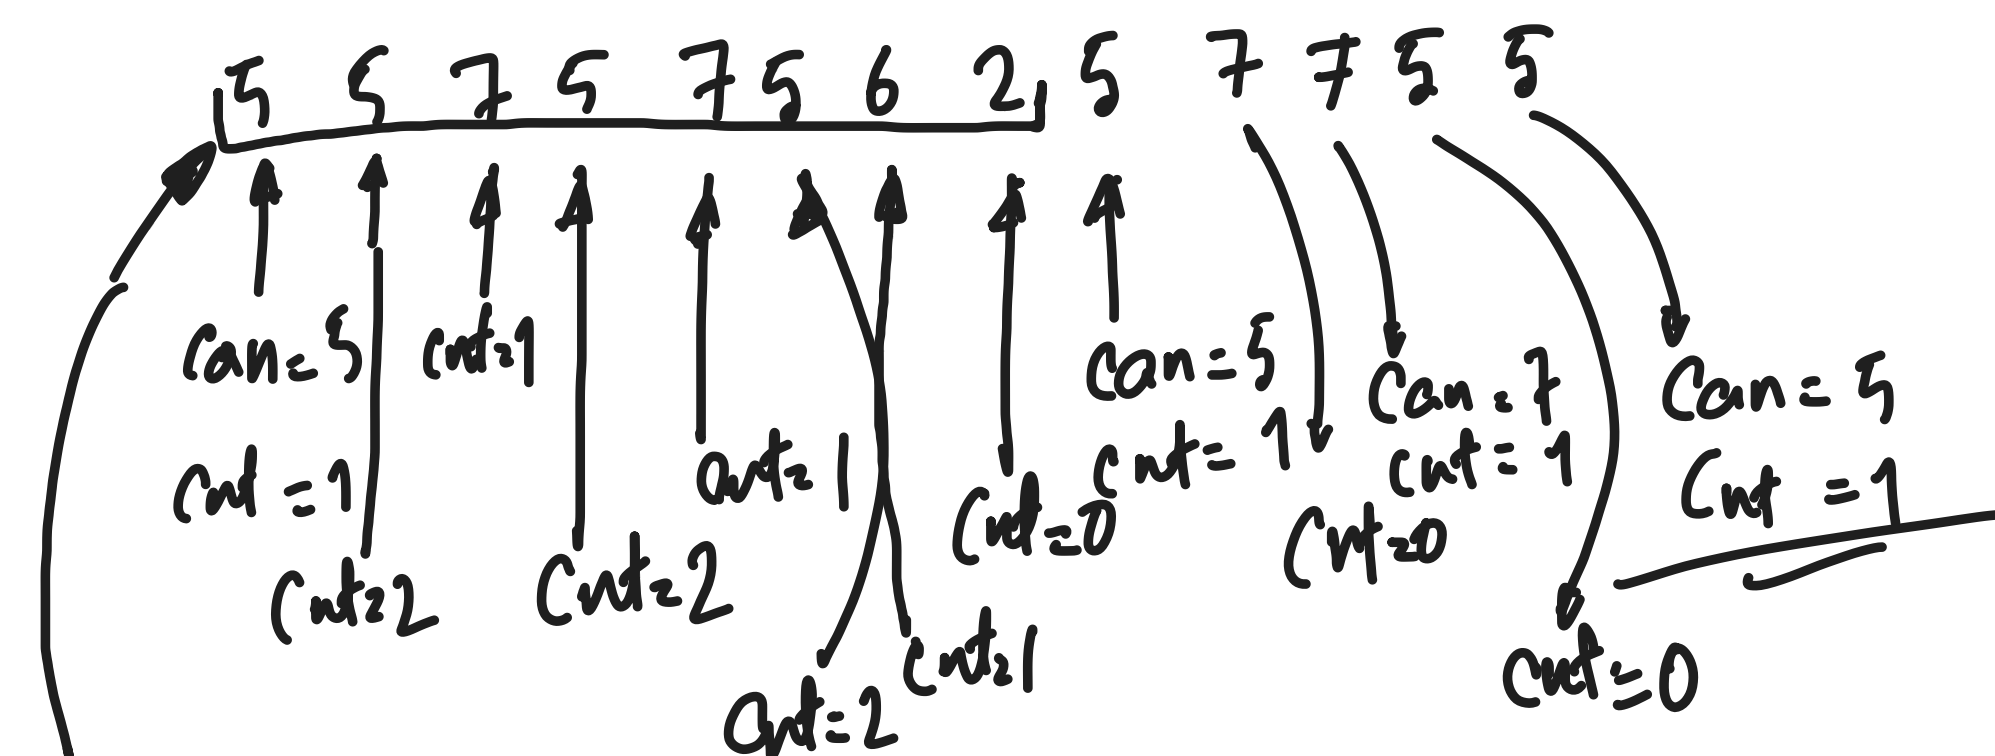 5 5 7 5 7 5 6 2 5 7 7 5 5
can = 5
cnt = 1
cnt = 2
cnt = 1
cnt = 2
cnt = 1
cnt = 2
cnt = 1
cnt = 0
can = 5
cnt = 1
cnt = 0
can = 7
cnt = 1
cnt = 0
can = 5
cnt = 1